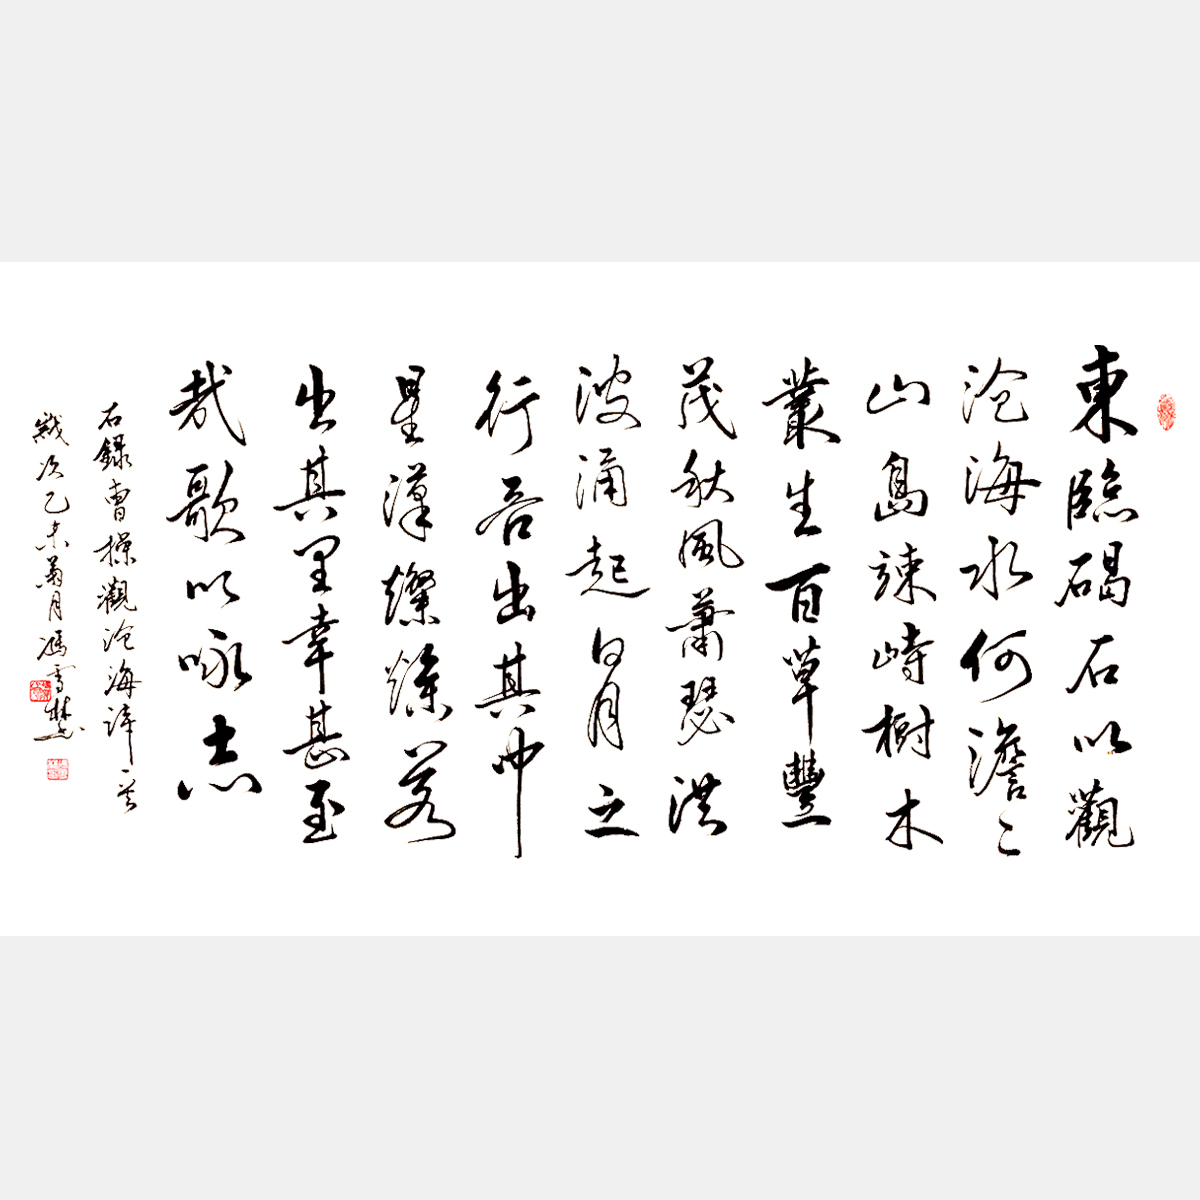 東臨碣石以觀
滄海水何澹〻
山島竦峙樹木
叢生百草豐
茂秋風蕭瑟洪
波涌起日月之
行若出其中
星漢燦爛若
出其里幸甚至
哉歌以咏志
右錄曹操觀滄海詩一首
歲次乙未菊月馮雪